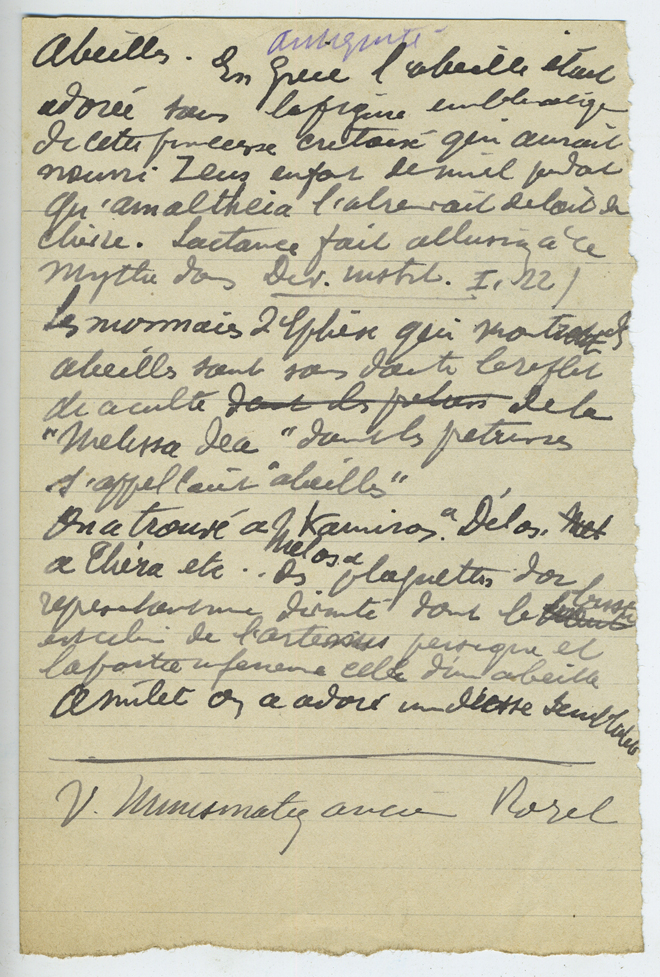 antiquité
Abeilles. En Grèce l'abeille était
adorée sous la figure emblématique
de cette princesse crétoise qui aurait
nourri Zeus enfant de miel pendant
qu'amaltheia l'abreuvait de lait de
chèvre. Lactance fait allusion à ce
mythe dans Div. instit. I, 22)
Les monnaies d'Ephèse qui montrent des
abeilles sont sans doute le reflet
de ce culte dont les prêtres de la
"Melissa dea" dont les prêtresses
s'appellaient "abeilles"
On a trouvé a Kamiros a Délos.
Melos a
a Théra etc.. des plaquettes d'or
buste
representant une divinité dont le
est celui de l'artemis persique et
la partie inferieure celle d'une abeille
on a adoré une déesse semblable
V. Numismatiq ancien